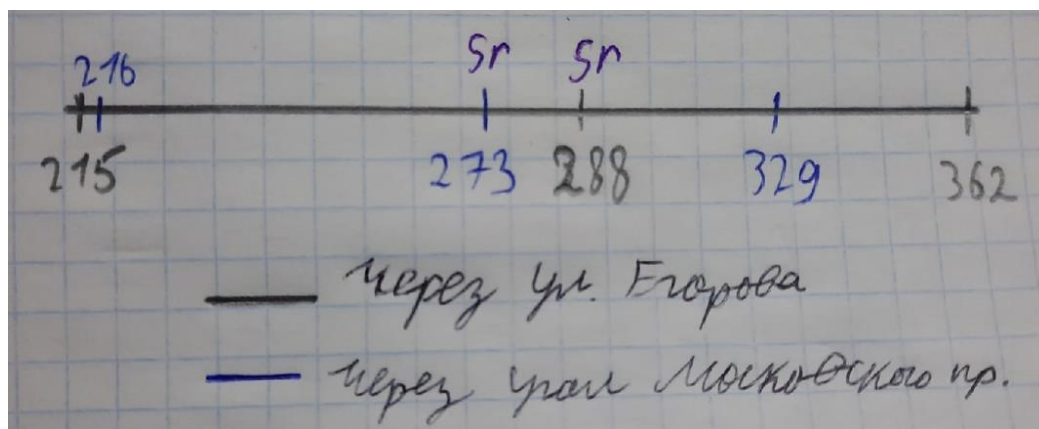 216 Sr Sr
215 273 288 329 362
через ул. Егорова
через угол Московского пр.